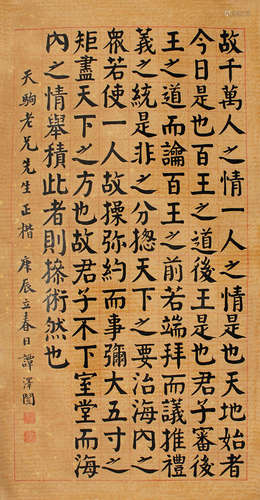 故千萬人之情一人之情是也天地始者
今日是也百王之道後王是也君子審後
王之道而論百王之前若端拜而議推禮
義之統是非之分揔天下之要治海內之
衆若使一人故操弥約而事彌大五寸之
矩盡天下之方也故君子不下室堂而海
內之情舉積此者則操術然也
天駒老兄先生正楷 庚辰立春日 譚澤闓